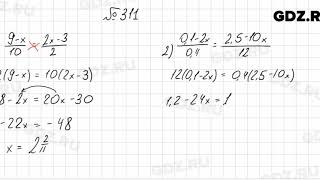 GDZ.RU
№ 311
9-x/10 × 2x-3/2
2) 0,1-2x/0,4 = 2,5-10x/12
(9-x) = 10(2x-3)
12(0,1-2x) = 0,4(2,5-10x)
8-2x = 20x-30
1,2-24x = 1
-22x = -48
x = 2 2/11